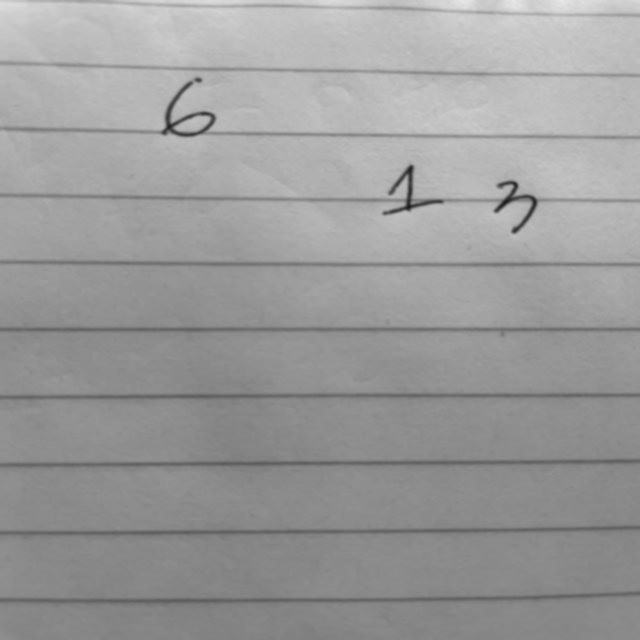 6
1 3